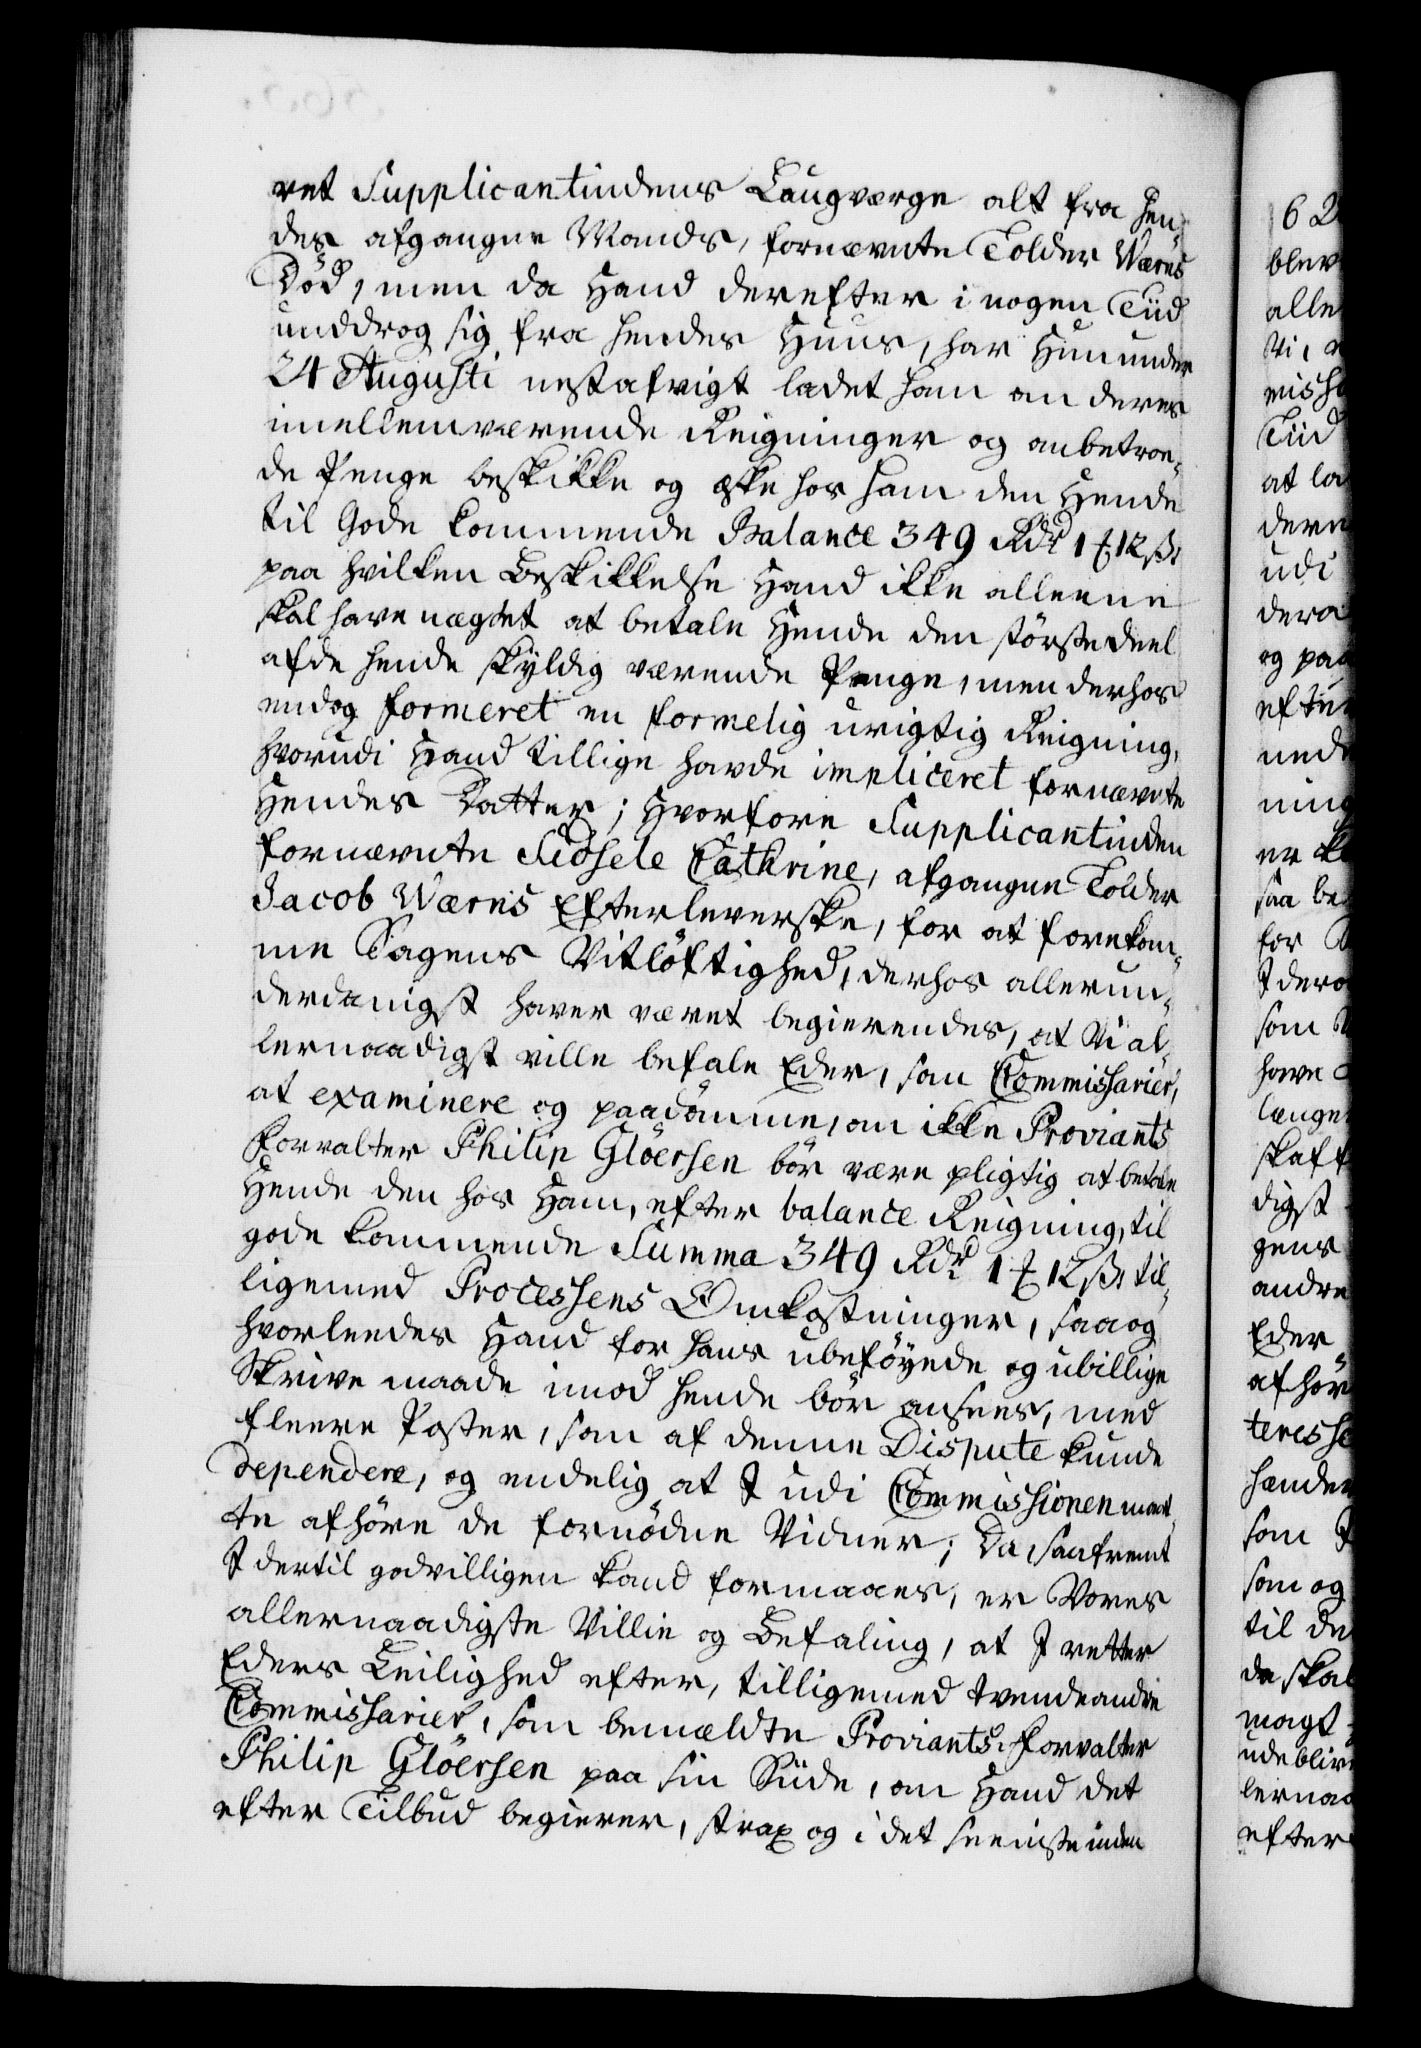 ret Supplicantindens Laugværge alt fra Hen-
des afgangne Mands, fornævnte Tolder Wærns
Død, men da Hand derefter i nogen Tiid
unddrog sig fra hendes Huus, har Hun under
24 Augusti nestafvigt ladet ham om deres
imellemværende Reigninger og anbetroe-
de Penge beskikke og æske hos ham den Hende
til Gode kommende Balance 349 Rdr 1 ƒ 12 ß,
paa hvilken Beskikkelse Hand ikke alleene
skal have nægtet at betale Hende den störste deel
af de hende skyldig værende Penge, men derhos
endog formeret en formelig urigtig Reigning,
hvorudi Hand tillige havde impliceret fornævnte
Hendes Datter; Hvorfore Supplicantinden
fornævnte Sidsele Cathrine, afgangne Tolder
Jacob Wærns Efterleverske, for at forekom-
me Sagens Vitlöftighed, derhos allerun-
derdanigst haver været begierendes, at Vi al-
lernaadigst ville befale Eder, som Commissarier,
at examinere og paadömme, om ikke Proviants
Forvalter Philip Glöersen bör være pligtig at betale
Hende den hos Ham, efter balance Reigning, til
gode kommende Summa 349 Rdr 1 ƒ 12 ß, til-
ligemed Processens Omkostninger, saa og
hvorleedes Hand for hans ubeföyede og ubillige
Skrive maade imod hende bör ansees, med
fleere Poster, som af denne Dispute kunde
dependere, og endelig at I udi Commissionen maat-
te afhöre de fornödne Vidner; Da, saafremt
I dertil godvilligen kand formaaes, er Vores
allernaadigste Villie og Befaling, at I retter
Eders Leilighed efter, tilligemed tvende andre
Commissarier, som bemældte Proviants Forvalter
Philip Glöersen paa sin Siide, om Hand det
efter Tilbud begierer, strax og i det seeniste inden